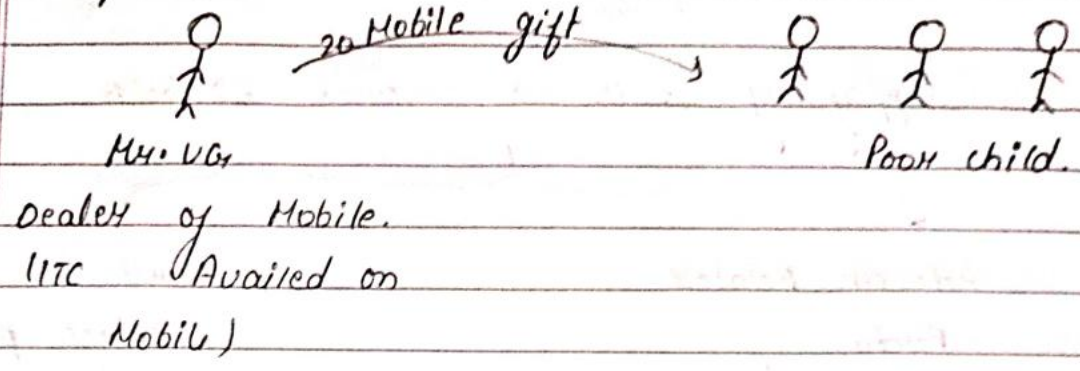 20 Mobile gift
Mr. VG
Poor child.
Dealer of Mobile.
(ITC Availed on
Mobile)